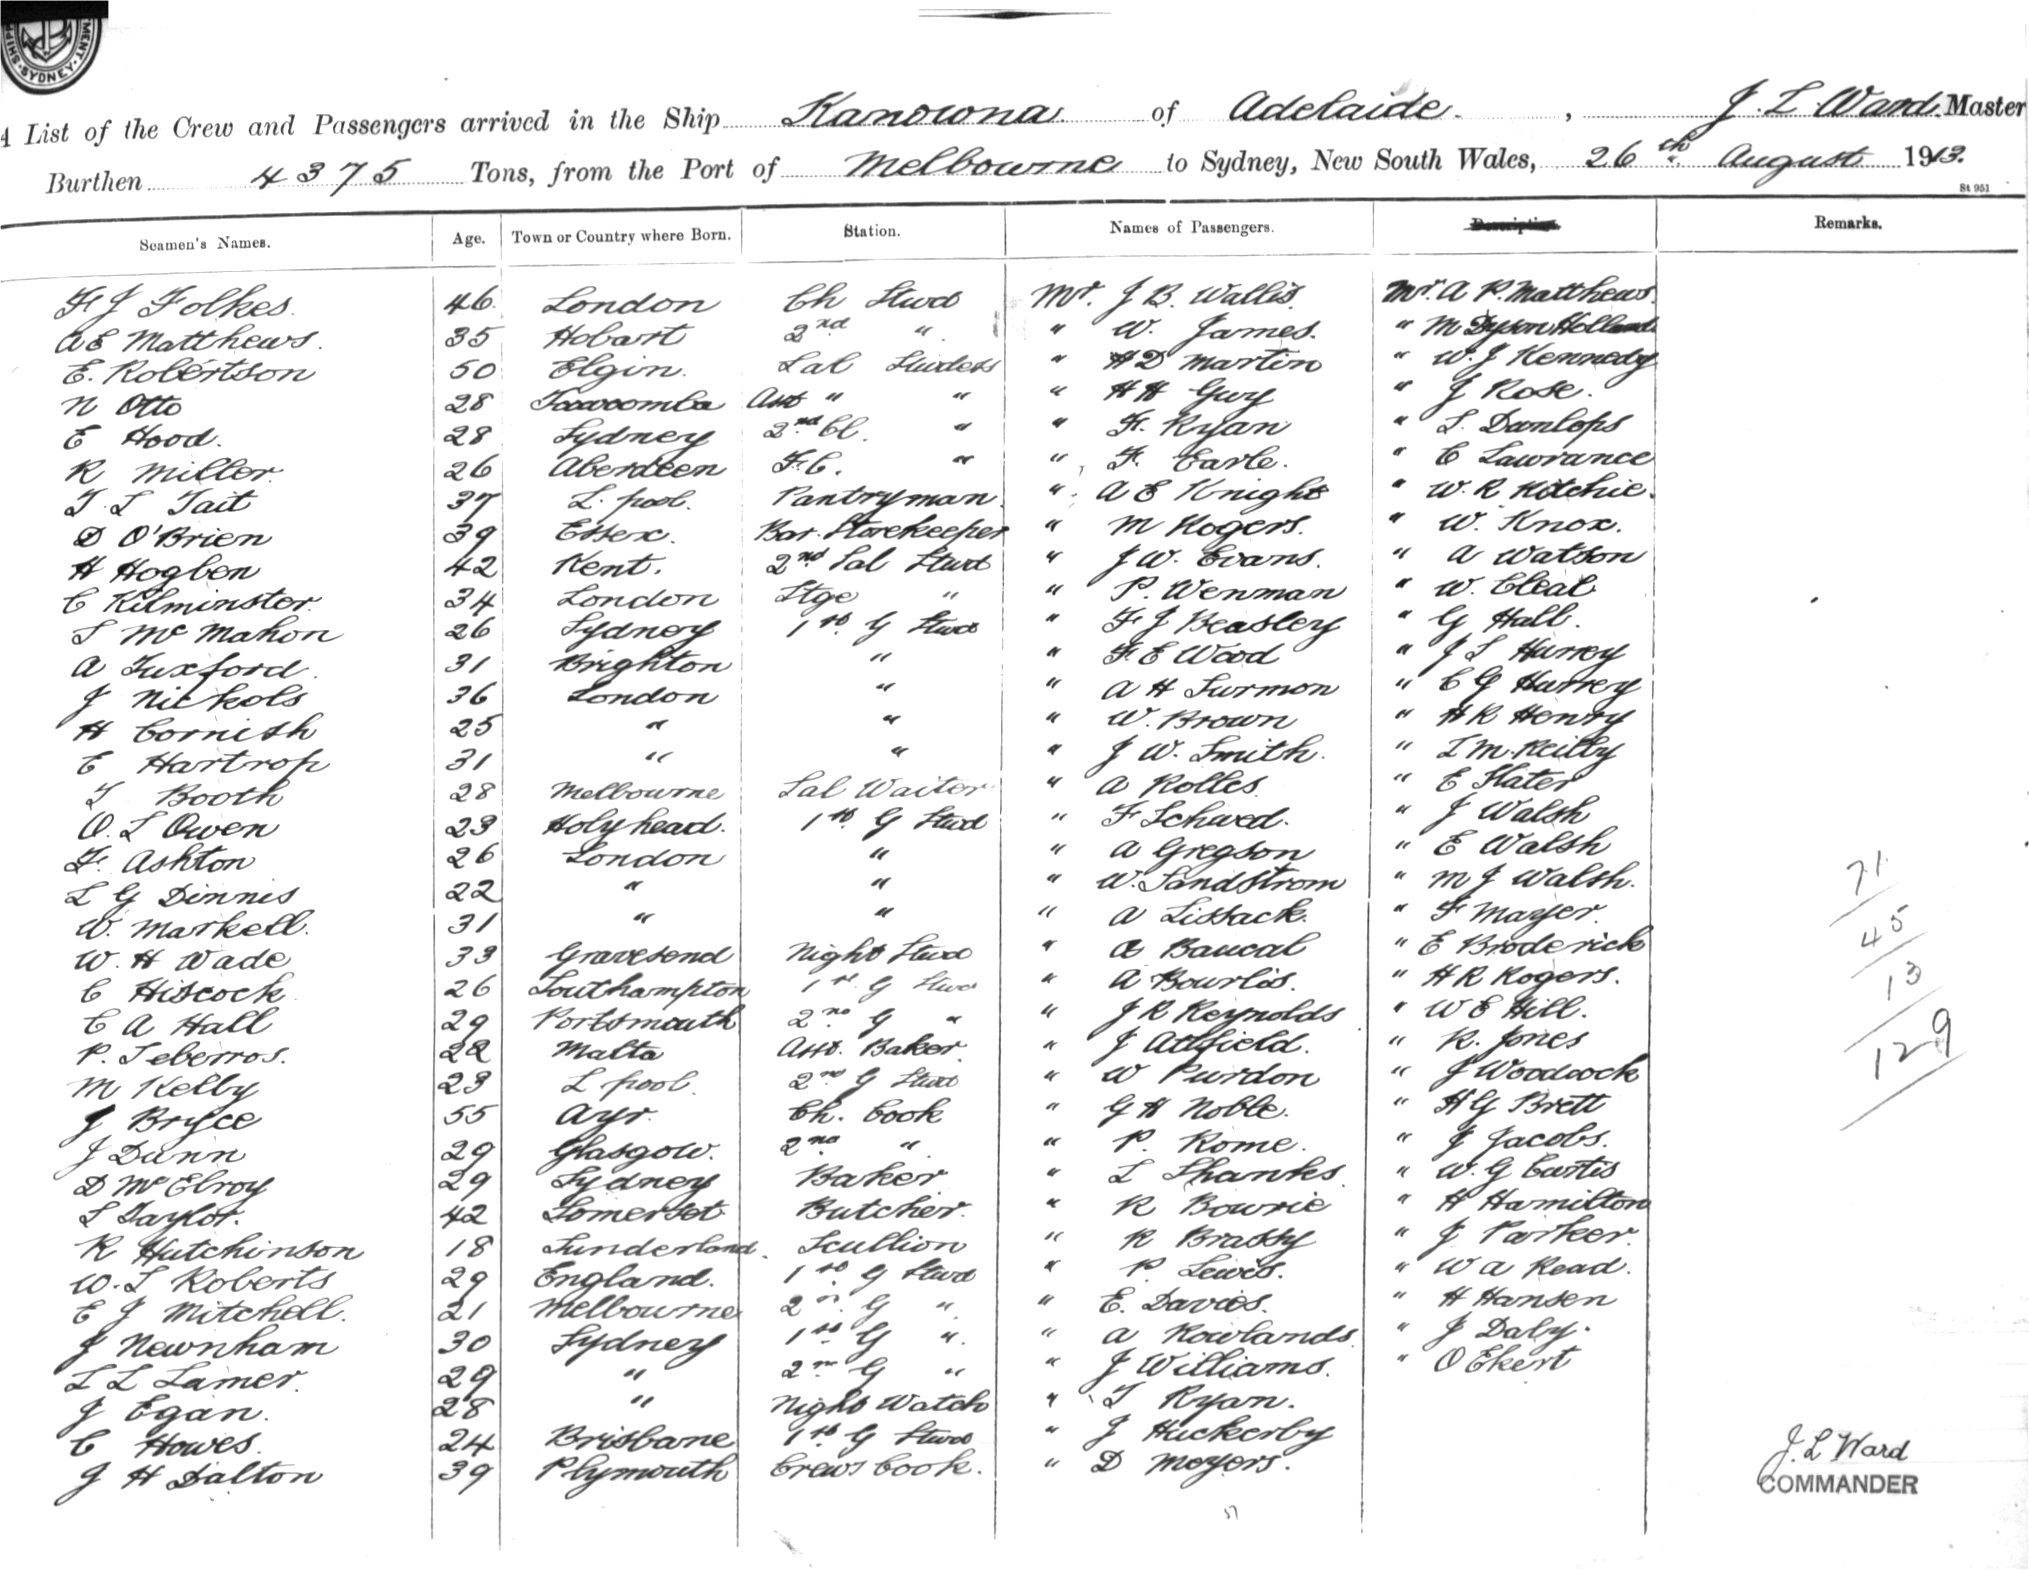 SHIP MENT · SYDNEY ·
A List of the Crew and Passengers arrived in the Ship Kanowna of Adelaide , J. L. Ward Master
Burthen 4375 Tons, from the Port of Melbourne to Sydney, New South Wales, 26th August 1913.
St 951
Seamen's Names. Age. Town or Country where Born. Station. Names of Passengers. Description. Remarks.
F J Folkes 46 London Ch Stwd Mr. J B. Wallis. Mr. A P. Matthews
A E Matthews. 35 Hobart 2nd " " W. James. " M Dyson Holland
E. Robertson 50 Elgin. Sal Stwdess " H D Martin " W. J Kennedy
N Otto 28 Toowoomba Asst " " " H H Guy " J Rose.
E Hood. 28 Sydney 2nd Cl. " " F. Ryan " S. Dunlops
R Miller. 26 Aberdeen F. C. " " F. Earle. " C Lawrance
T. L Tait 37 L. pool. Pantryman " A E Knight " W. R Ritchie.
D O'Brien 39 Essex. Bar. Storekeeper " M Rogers. " W. Knox.
H Hogben 42 Kent. 2nd Sal Stwd " J W. Evans. " A Watson
C Kilminster. 34 London Stge " " P. Wenman " W. Cleal
S McMahon 26 Sydney 1st G Stwd " F J Beasley " G Hall.
A Tuxford. 31 Brighton " " F. E Wood " J S Hurrey
J Nickols 36 London " " A H Surmon " C G Harrey
H Cornish 25 " " " W. Brown " H R Henry
E Hartrop 31 " " " J W. Smith. " T M. Reilly
T Booth 28 Melbourne Sal Waiter " A Rolles " E Slater
O. L Owen 23 Holyhead. 1st G Stwd " F Schwed. " J Walsh
F. Ashton 26 London " " A Gregson " E Walsh
L G Dinnis 22 " " " W. Sandstrom " M J Walsh.
W. Markell. 31 " " " A Lissack. " F Mayer.
W. H Wade 33 Gravesend Night Stwd " A Baucal " E Broderick
C Hiscock 26 Southampton 1st G Stwd " A Bourlis. " H R Rogers.
C A Hall 29 Portsmouth 2nd G " " J R Reynolds " W E Hill.
P. Seberros. 22 Malta Asst. Baker. " J Attfield. " R. Jones
M Kelly 23 L pool. 2nd G Stwd " W Purdon " J Woodcock
J Bryce 55 Ayr. Ch. Cook " G H Noble. " H G Brett
J Dunn 29 Glasgow. 2nd " " P. Rome. " J Jacobs.
D McElroy 29 Sydney Baker " L Shanks. " W. G Curtis
S Taylor. 42 Somerset Butcher. " R Bowrie " H Hamilton
R Hutchinson 18 Sunderland. Scullion " R Brassy " J Parker.
W. S Roberts 29 England. 1st G Stwd " P. Lewis. " W A Read.
E J Mitchell. 21 Melbourne 2nd G " " E. Davies. " H Hansen
J Newnham 30 Sydney 1st G " " A Rowlands " J Daly.
L L Lamer. 29 " 2nd G " " J Williams. " O Ekert
J Egan. 28 " Night Watch " T Ryan.
C Howes. 24 Brisbane 1st G Stwd " J Huckerby
J H Dalton 39 Plymouth Crews Cook. " D Meyers.
71
45
13
129
J. L Ward
COMMANDER